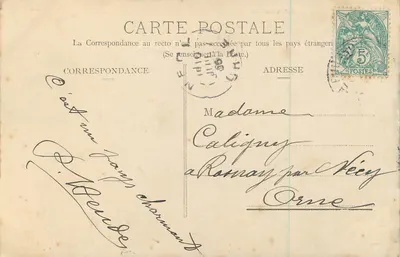 CARTE POSTALE
La Correspondance au recto n'est pas acceptée par tous les pays étrangers
(Se renseigner à la Poste)
CORRESPONDANCE
ADRESSE
5
POSTES
C'est un pays charmant
Madame
Caligny
a Rosnay par Nécy
Orne